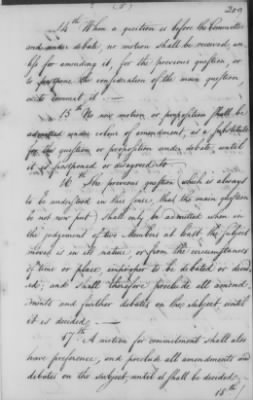 (8)
14th When a question is before the Committee
and under debate, no motion shall be received, un-
less for amending it, for the previous question, or
to postpone the consideration of the main question,
or to commit it. —
15th No new motion or proposition shall be
admitted under colour of amendment, as a substitute
for the question or proposition under debate, until
it is postponed or disagreed to
16th The previous question (which is always
to be understood in this sense, that the main question
be not now put) shall only be admitted when in
the judgement of two Members at least, the subject
moved is in its nature, or from the circumstances
of time or place, improper to be debated or deci-
ded; and shall therefore preclude all amend-
ments and further debates on the subject until
it is decided —
17th A motion for commitment shall also
have preference, and preclude all amendments and
debates on the subject until it shall be decided
18th